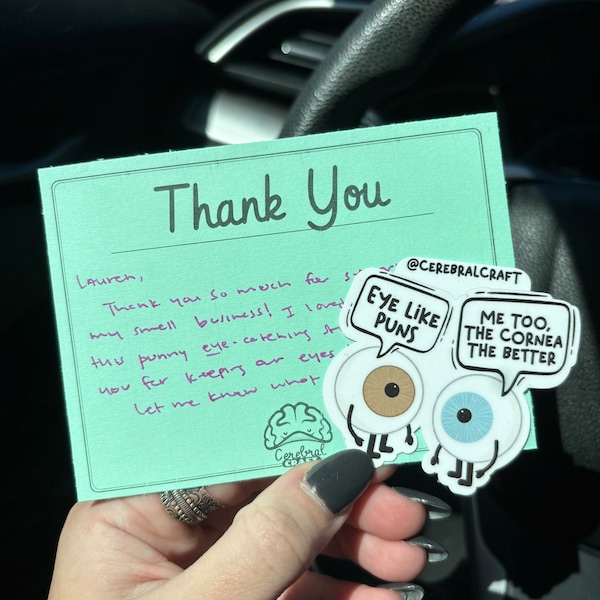 Thank You
Lauren,
Thank you so much for
my small business! I loved
this punny eye-catching
you for keeping our eyes
Let me know what
Cerebral
@CEREBRALCRAFT
EYE LIKE
PUNS
ME TOO,
THE CORNEA
THE BETTER